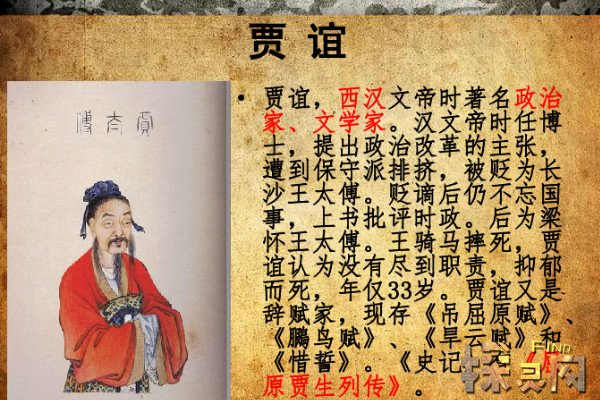 贾 谊
贾太傅
• 贾谊，西汉文帝时著名政治
家、文学家。汉文帝时任博
士，提出政治改革的主张，
遭到保守派排挤，被贬为长
沙王太傅。贬谪后仍不忘国
事，上书批评时政。后为梁
怀王太傅。王骑马摔死，贾
谊认为没有尽到职责，抑郁
而死，年仅33岁。贾谊又是
辞赋家，现存《吊屈原赋》、
《鵩鸟赋》、《旱云赋》和
《惜誓》。《史记
原贾生列传》。
FIND
探灵网